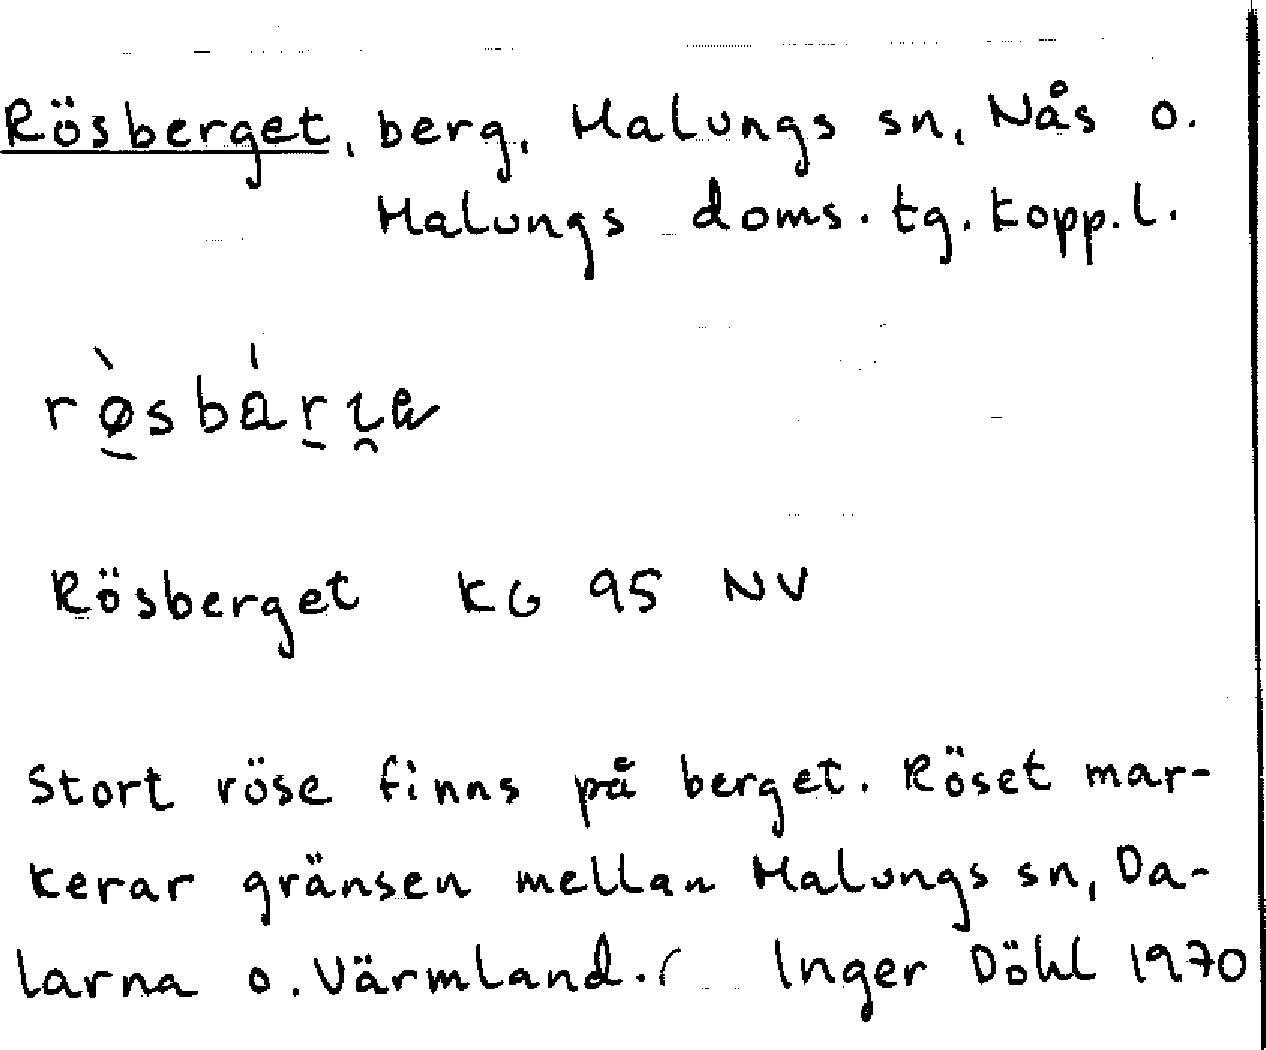 Rösberget, berg, Malungs sn, Nås o.
Malungs doms. tg. Kopp. l.
Rösberget KG 95 NV
Stort röse finns på berget. Röset mar-
kerar gränsen mellan Malungs sn, Da-
larna o. Värmland. Inger Döhl 1970